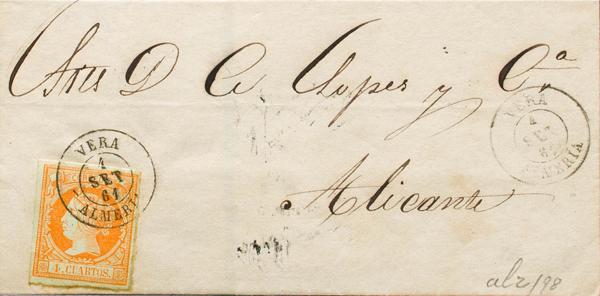 Sres D C Lopez y Cª
Alicante
VERA
4
SET
61
ALMERIA
4 CUARTOS.
VERA
4
SET
61
ALMERIA
alz/98